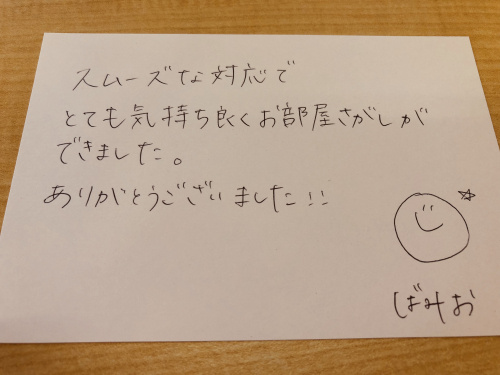 スムーズな対応で
とても気持ち良くお部屋さがしが
できました。
ありがとうございました!!
ばみお